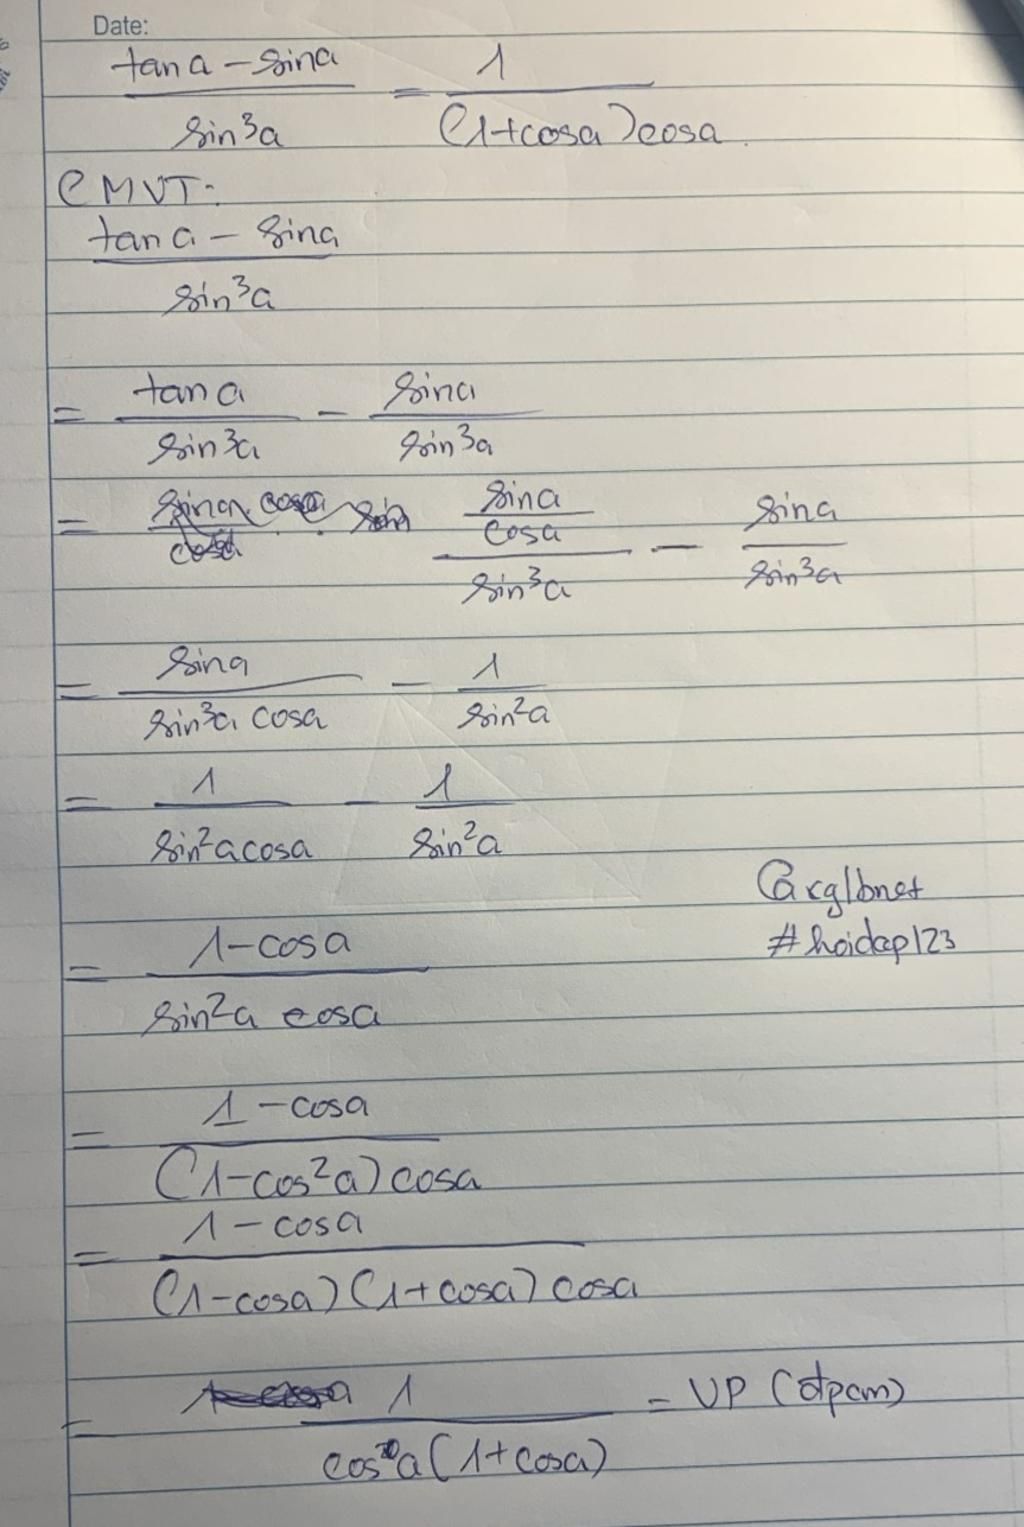 Date:
tan a - sina / sin³a = 1 / (1+cosa)cosa
CMVT:
tan a - sina / sin³a
= tan a / sin³a - sina / sin³a
= sina/cosa / sin³a - sina / sin³a
= sina / sin³a cosa - 1 / sin²a
= 1 / sin²a cosa - 1 / sin²a
@xg1bnet
#hoidap123
= 1-cosa / sin²a cosa
= 1-cosa / (1-cos²a)cosa
= 1-cosa / (1-cosa)(1+cosa)cosa
= 1 / cosa(1+cosa) = VP (đpcm)